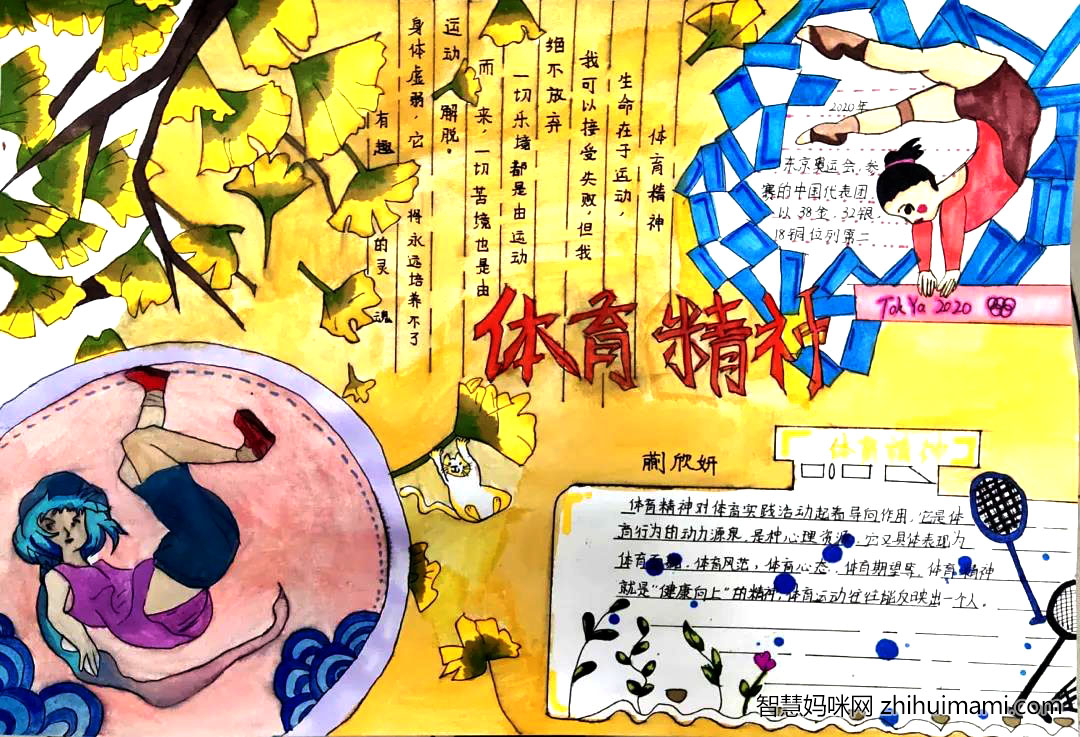 体育精神
生命在于运动，
我可以接受失败，但我
绝不放弃
一切乐境都是由运动
而来，一切苦境也是由
运动 解脱。
身体虚弱，它 将永远培养不了
有趣 的灵魂
2020年
东京奥运会，参
赛的中国代表团
以38金，32银，
18铜位列第二
TokYo 2020
体育精神
蔺欣妍
体育精神对体育实践活动起着导向作用，它是体
育行为的动力源泉，是种心理资源。它又具体表现为
体育面貌，体育风范，体育心态，体育期望等，体育精神
就是“健康向上”的精神，体育运动往往能反映出一个人。
智慧妈咪网 zhihuimami.com